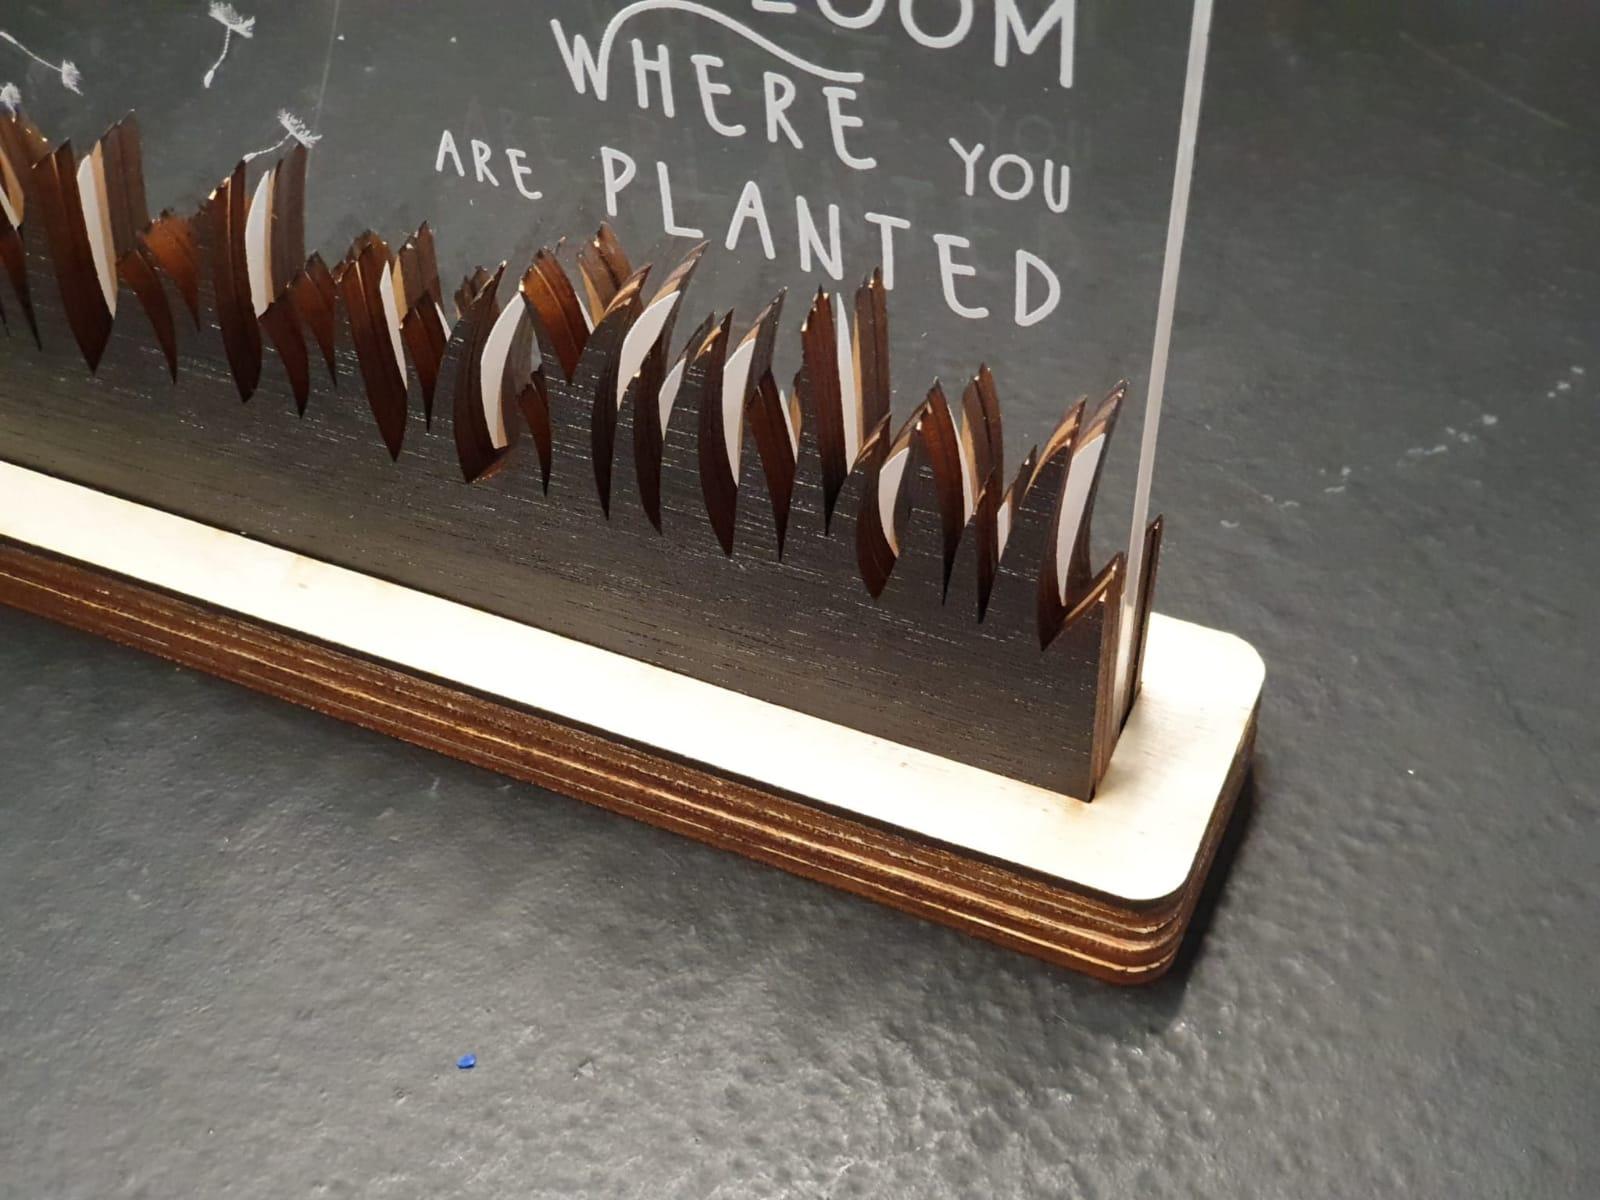 LOOM
WHERE YOU
ARE PLANTED